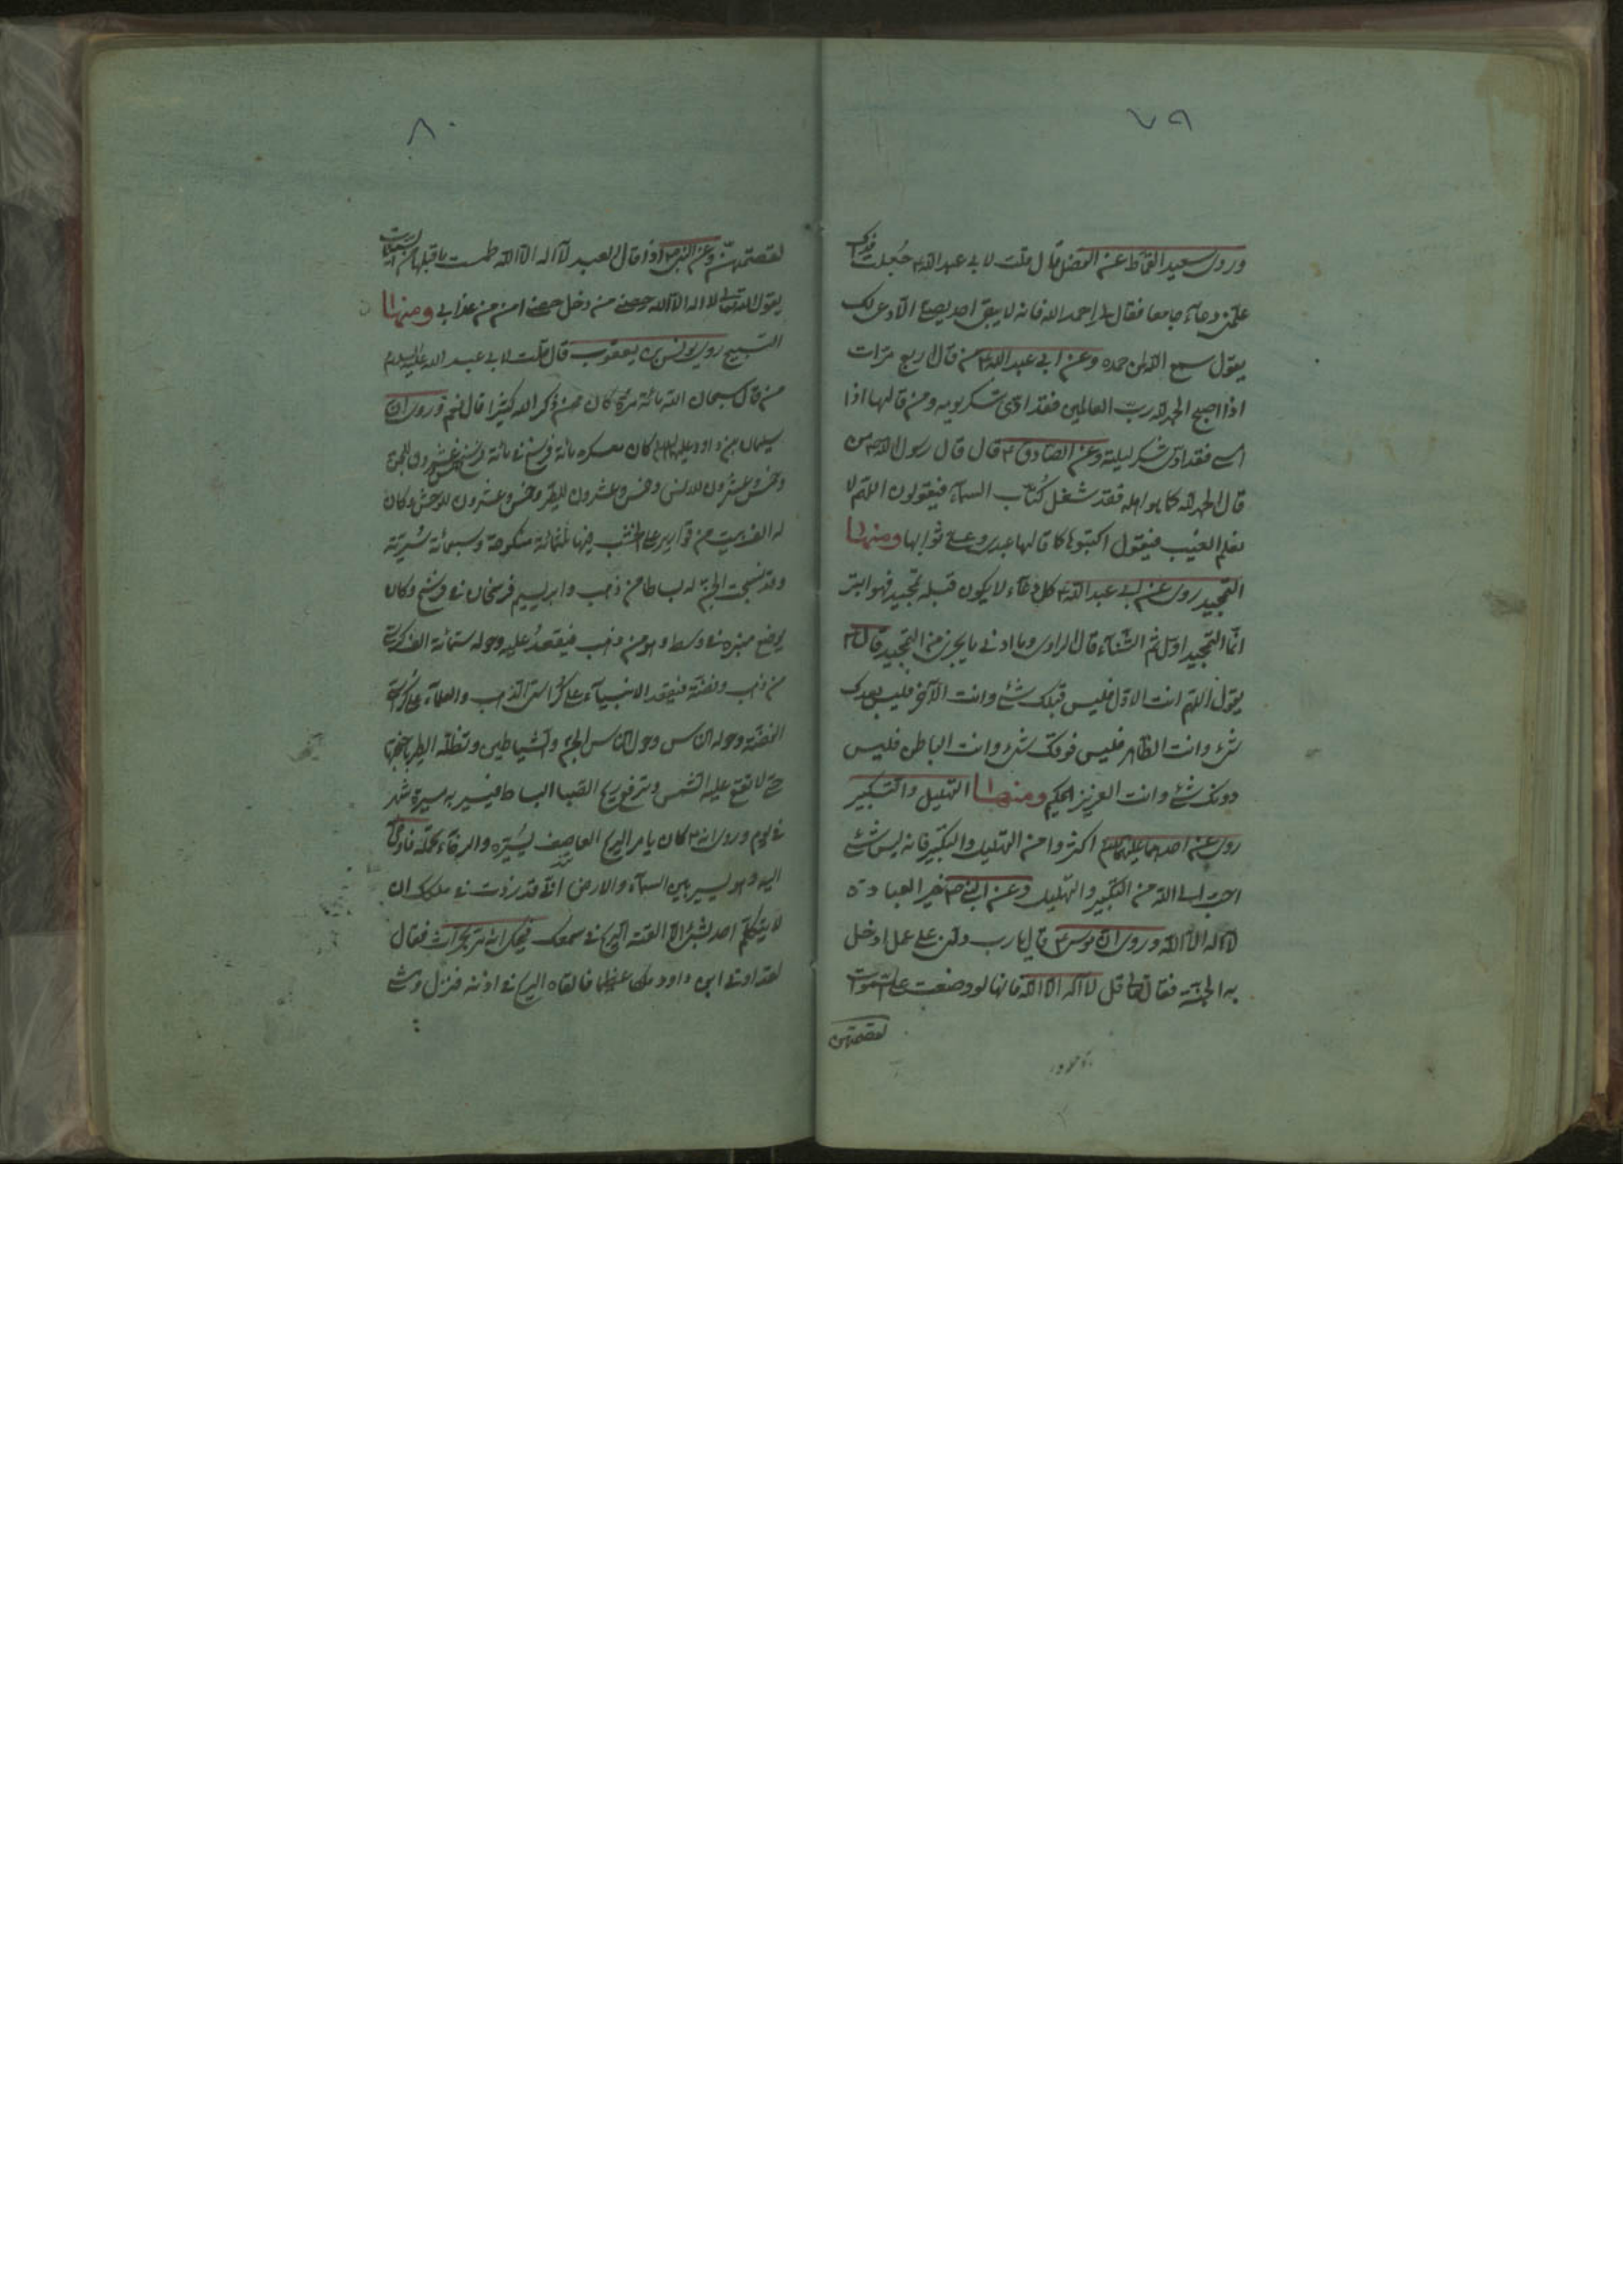 ٧٩
وروى سعيد القماط عن الفضل قال قلت لابى عبدالله ع جعلت فداك
علمنى دعاء جامعا فقال لى احمد الله فانه لا يبقى احد يصلى الا دعى لك
يقول سمع الله لمن حمده وعن ابى عبدالله ع من قال اربع مرات
اذا اصبح الحمد لله رب العالمين فقد ادى شكر يومه ومن قالها اذا
امسى فقد ادى شكر ليلته وعن الصادق ع قال قال رسول الله ص من
قال الحمد لله كما هو اهله فقد شغل كُتّاب السماء فيقولون اللهم لا
نعلم الغيب فيقول اكتبوها كما قالها عبدى وعلى ثوابها ومنها
التمجيد روى عن ابى عبدالله ع كل دعاء لا يكون قبله تمجيد فهو ابتر
انما التمجيد اول ثم الثناء قال الراوى وما ادنى ما يجزى من التمجيد قال ع
يقول اللهم انت الاول فليس قبلك شئ وانت الآخر فليس بعدك
شئ وانت الظاهر فليس فوقك شئ وانت الباطن فليس
دونك شئ وانت العزيز الحكيم ومنها التهليل والتكبير
روى عن احدهما عليهما السلم اكثروا من التهليل والتكبير فانه ليس شئ
احب الى الله من التكبير والتهليل وعن النبى ص خير العبادة
لا اله الا الله وروى ان موسى ع قال يا رب دلنى على عمل ادخل
به الجنة فقال تعالى قل لا اله الا الله فانها لو وضعت على السموات
لقصمتهن
٨٠
لقصمتهنّ وعن النبى ص اذا قال العبد لا اله الا الله طمست ما قبلها من السيئات
يقول الله تعالى لا اله الا الله حصنى من دخل حصنى امن من عذابى ومنها
التسبيح روى يونس بن يعقوب قال قلت لابى عبد الله عليه السلام
من قال سبحان الله مائة مرة كان ممن ذكر الله كثيرا قال نعم وروى ان
سليمان بن داود عليهما السلام كان معسكره مائة فرسخ فى مائة فرسخ خمس وعشرون للجن
وخمس وعشرون للانس وخمس وعشرون للطير وخمس وعشرون للوحش وكان
له الف بيت من قوارير على الخشب فيها ثلثمائة منكوحة وسبعمائة سُريّة
وقد نسجت الجن له بساطا من ذهب وابريسم فرسخان فى فرسخ وكان
يوضع منبره فى وسطه وهو من ذهب فيقعد عليه وحوله ستمائة الف كرسى
من ذهب وفضة فيقعد الانبياء على كراسى الذهب والعلماء على كراسى
الفضة وحوله الناس وحول الناس الجن والشياطين وتظله الطير باجنحتها
حتى لا تقع عليه الشمس وترفع ريح الصبا البساط فيسير به مسيرة شهر
فى يوم وروى انه ع كان يامر الريح العاصف يسيّره والرخاء تحمله فاوحى
اليه وهو يسير بين السماء والارض انى قد زدت فى ملكك ان
لا يتكلم احد بشئ الا القته الريح فى سمعك فيحكى انه مر بحراث فقال
لقد اوتى ابن داود ملكا عظيما فالقاه الريح فى اذنه فنزل ومشى